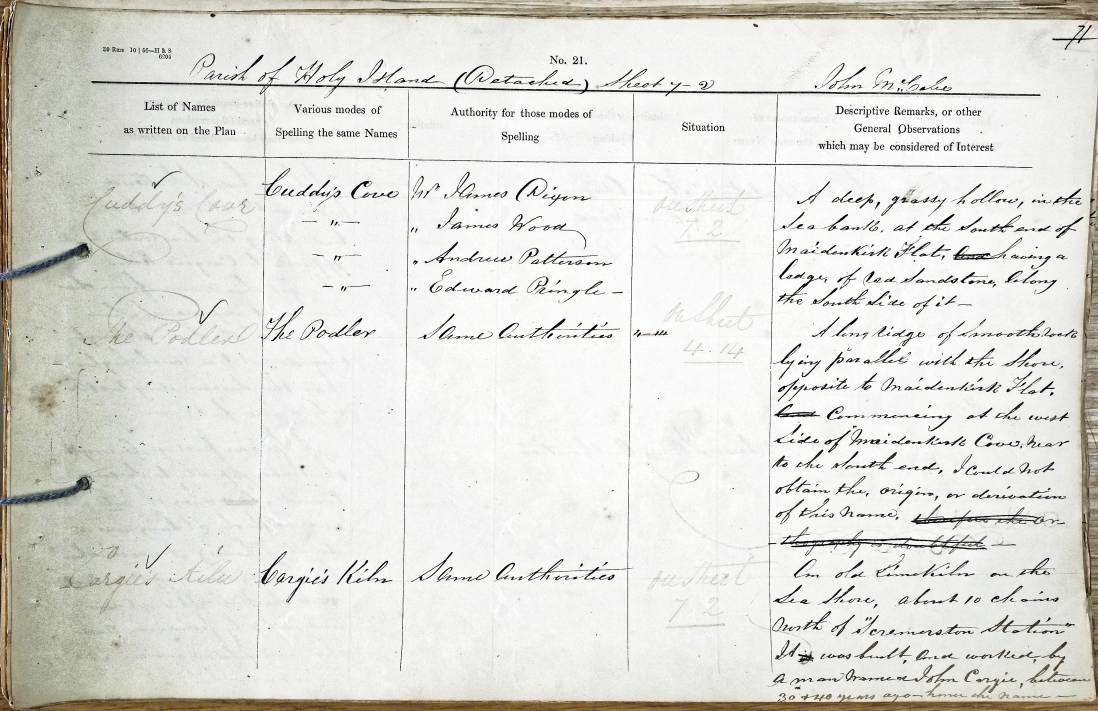 71
20 Rms 10 | 56—H & S
6205
No. 21.
Parish of Holy Island (Detached) Sheet 7-2 John McCabe
List of Names
as written on the Plan
Various modes of
Spelling the same Names
Authority for those modes of
Spelling
Situation
Descriptive Remarks, or other
General Observations
which may be considered of Interest
Cuddy's Cove
Cuddy's Cove
— „ —
— „ —
— „ —
Mr James Dixon
„ James Wood
„ Andrew Patterson
„ Edward Pringle —
on sheet
7 2
A deep, grassy hollow, in the
Sea bank, at the South end of
Maidenkirk Flat, and having a
ledge, of red Sandstone, along
the South Side of it —
The Podler
The Podler
Same Authorities
on Sheet
4.14
A long ridge of smooth rock
lying parallel with the Shore,
opposite to Maidenkirk Flat,
and Commencing at the west
Side of Maidenkirk Cove, near
to the South end, I could not
obtain the, origin, or derivation
of this Name. therefore the or-
thography is doubtful —
Cargie's Kiln
Cargie's Kiln
Same Authorities
on sheet
7 2
An old Limekiln on the
Sea Shore, about 10 chains
North of "Scremerston Station"
It is was built, and worked, by
a man Named John Cargie, between
30 & 40 years ago — hence the name —